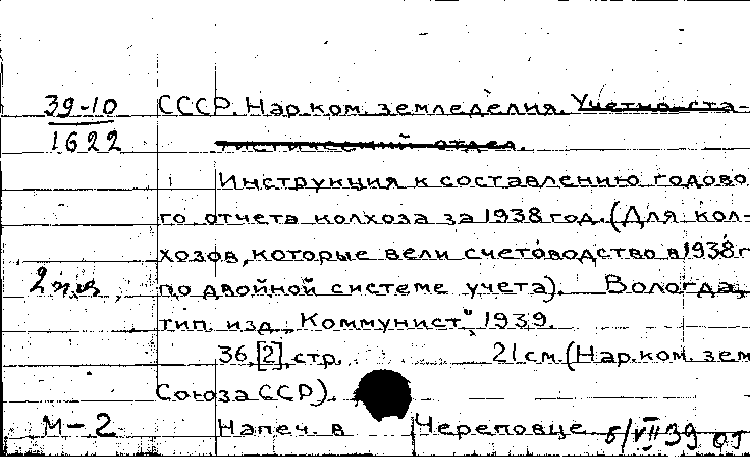 39-10 СССР. Нар.ком. земледелия. Учетно-ста-
1622 тистический отдел.
Инструкция к составлению годово
го отчета колхоза за 1938 год. (Для кол-
хозов, которые вели счетоводство в 1938 г
по двойной системе учета). Вологда,
тип. изд. "Коммунист", 1939.
36, [2] стр. 21 см. (Нар.ком. зем
Союза ССР).
М-2 Напеч. в Череповце